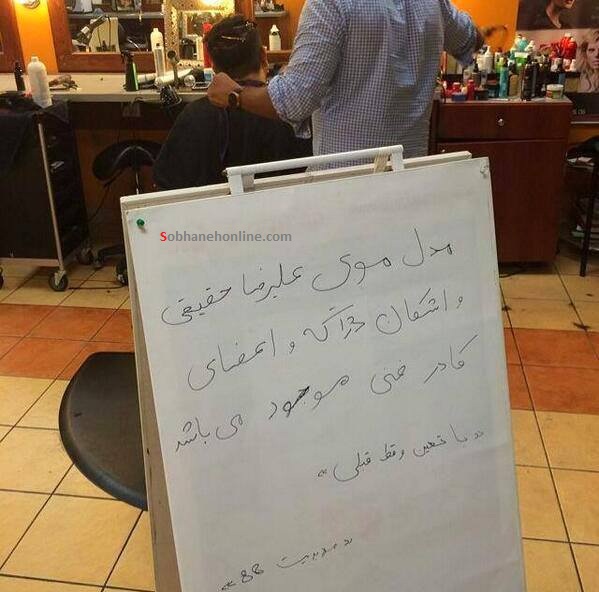 Sobhanehonline.com
مدل موی علیرضا حقیقی
و اشکان دژاگه و اعضای
کادر فنی موجود می باشد
«با تعین وقط قبلی»
«مدیریت